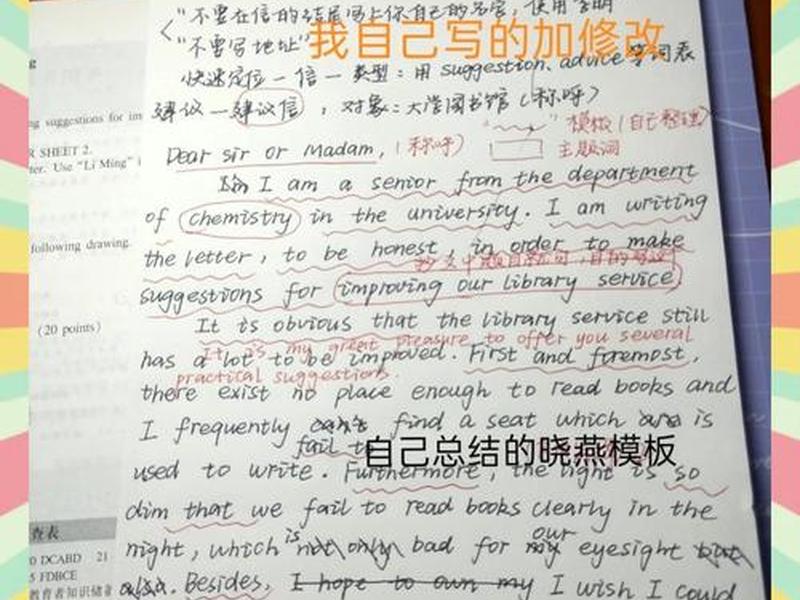 "不要在信的结尾写上你自己的名字，使用李明
"不要写地址"
我自己写的加修改
快速定位一信一类型：用 suggestion、advice 等词表
建议—建议信，对象：大学图书馆（称呼）
"～" 模板（自己整理）
ng suggestions for im
R SHEET 2.
Dear Sir or Madam,（称呼）
主题词
tter. Use "Li Ming" i
I am a senior from the department
of chemistry in the university. I am writing
following drawing.
the letter, to be honest, in order to make
suggestions for improving our library service
(20 points)
It is obvious that the library service still
It is my great pleasure to offer you several
has a lot to be improved. First and foremost,
practical suggestions.
there exist no place enough to read books and
I frequently find a seat which is
fail to
自己总结的晓燕模板
used to write. Furthermore, the light is so
dim that we fail to read books clearly in the
查表
is our
night, which not only bad for my eyesight but
0 DCABD 21
5 FDBCE
教育者知识储备
also. Besides, I hope to own my I wish I could